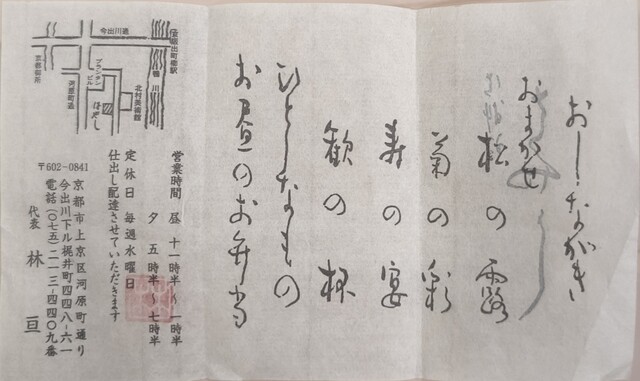 おしながき
おまかせ
松の露
菊の彩
寿の宴
歓の杯
ひとしなもの
お昼のお弁当
営業時間 昼 十一時半〜一時半
夕 五時半〜七時半
定休日 毎週水曜日
仕出し配達させていただきます
〒602-0841
京都市上京区河原町通り
今出川下ル梶井町四四八-六一
電話(〇七五)二一三-四四〇九番
代表 林 亘
今出川通
出町柳駅
鴨川
京都御所
河原町通
プランタンビル
はやし
北村美術館